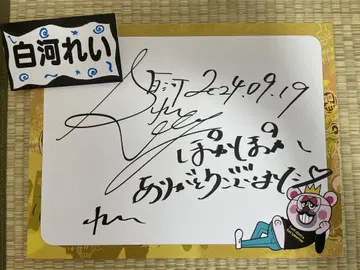 白河れい
白河 2024.09.19
ぽかぽか
ありがとうございました♡